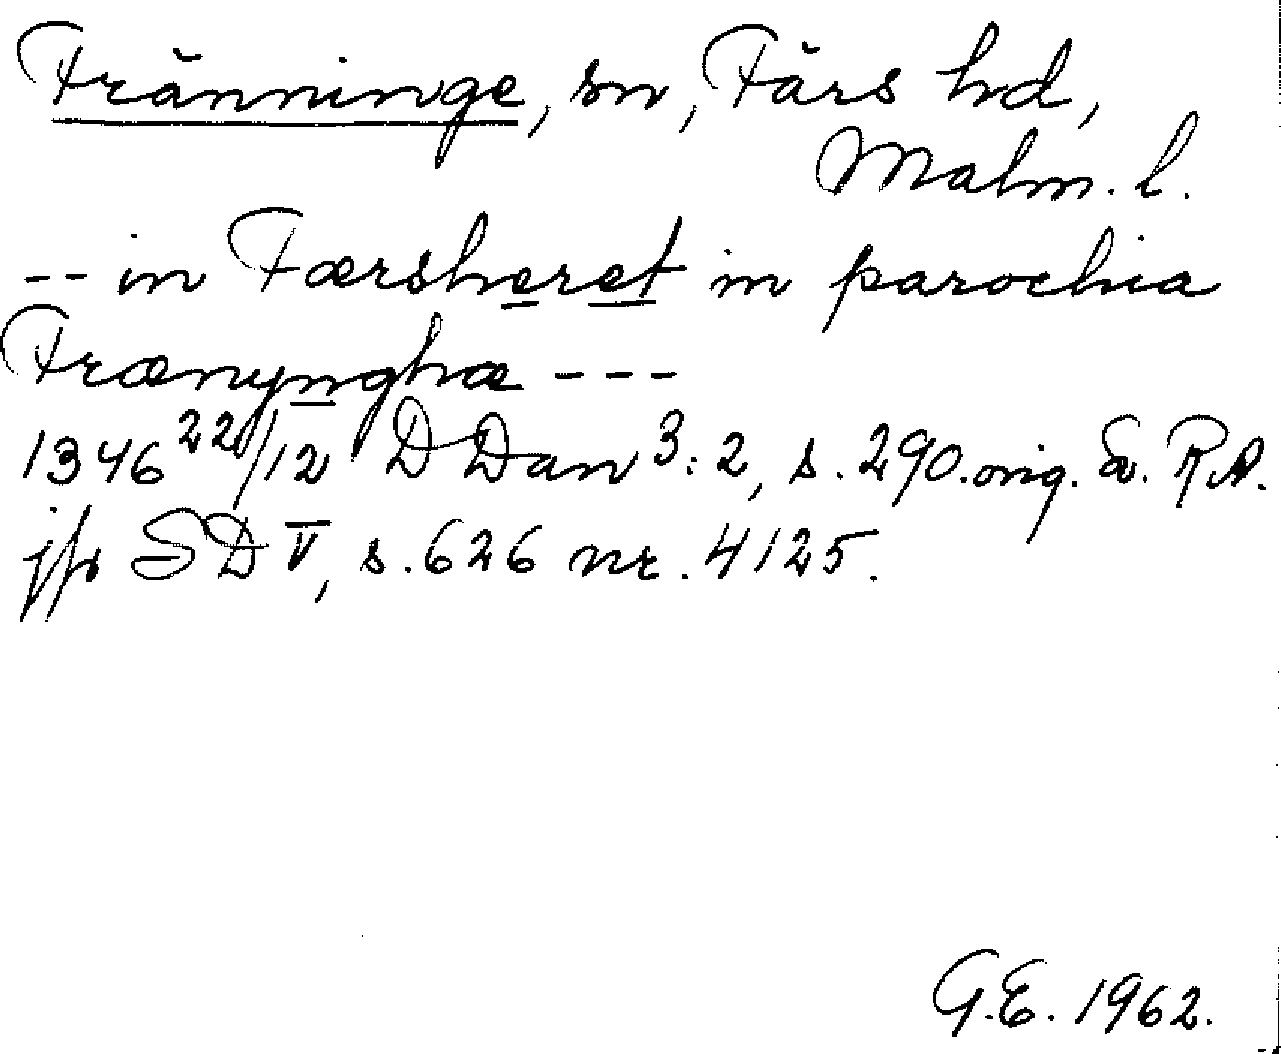 Fränninge, sn, Färs hd,
Malm. l.
-- in Færsheret in parochia
Frænynghæ ---
1346 22/12 DDan 3:2, s. 290. orig. Sv. R.A.
jfr SD V, s. 626 nr. 4125.
G.E. 1962.